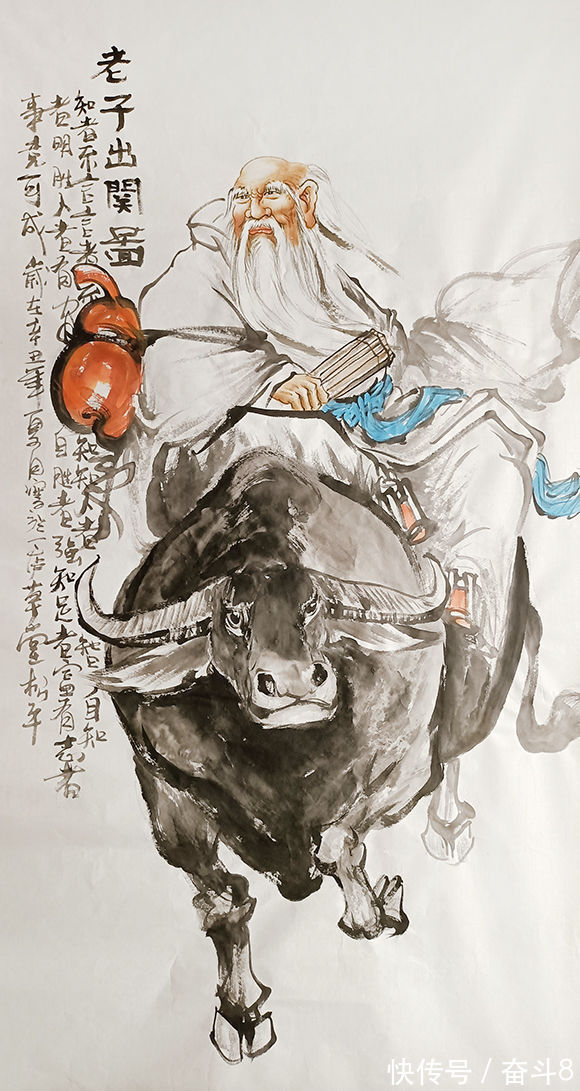 老子出関啚
知者不言言者不知知人者智自知
者明胜人者有力自胜者强知足者富有志者
事竟可成 歲在辛丑年夏月寫於一草堂平
快传号 / 奋斗8